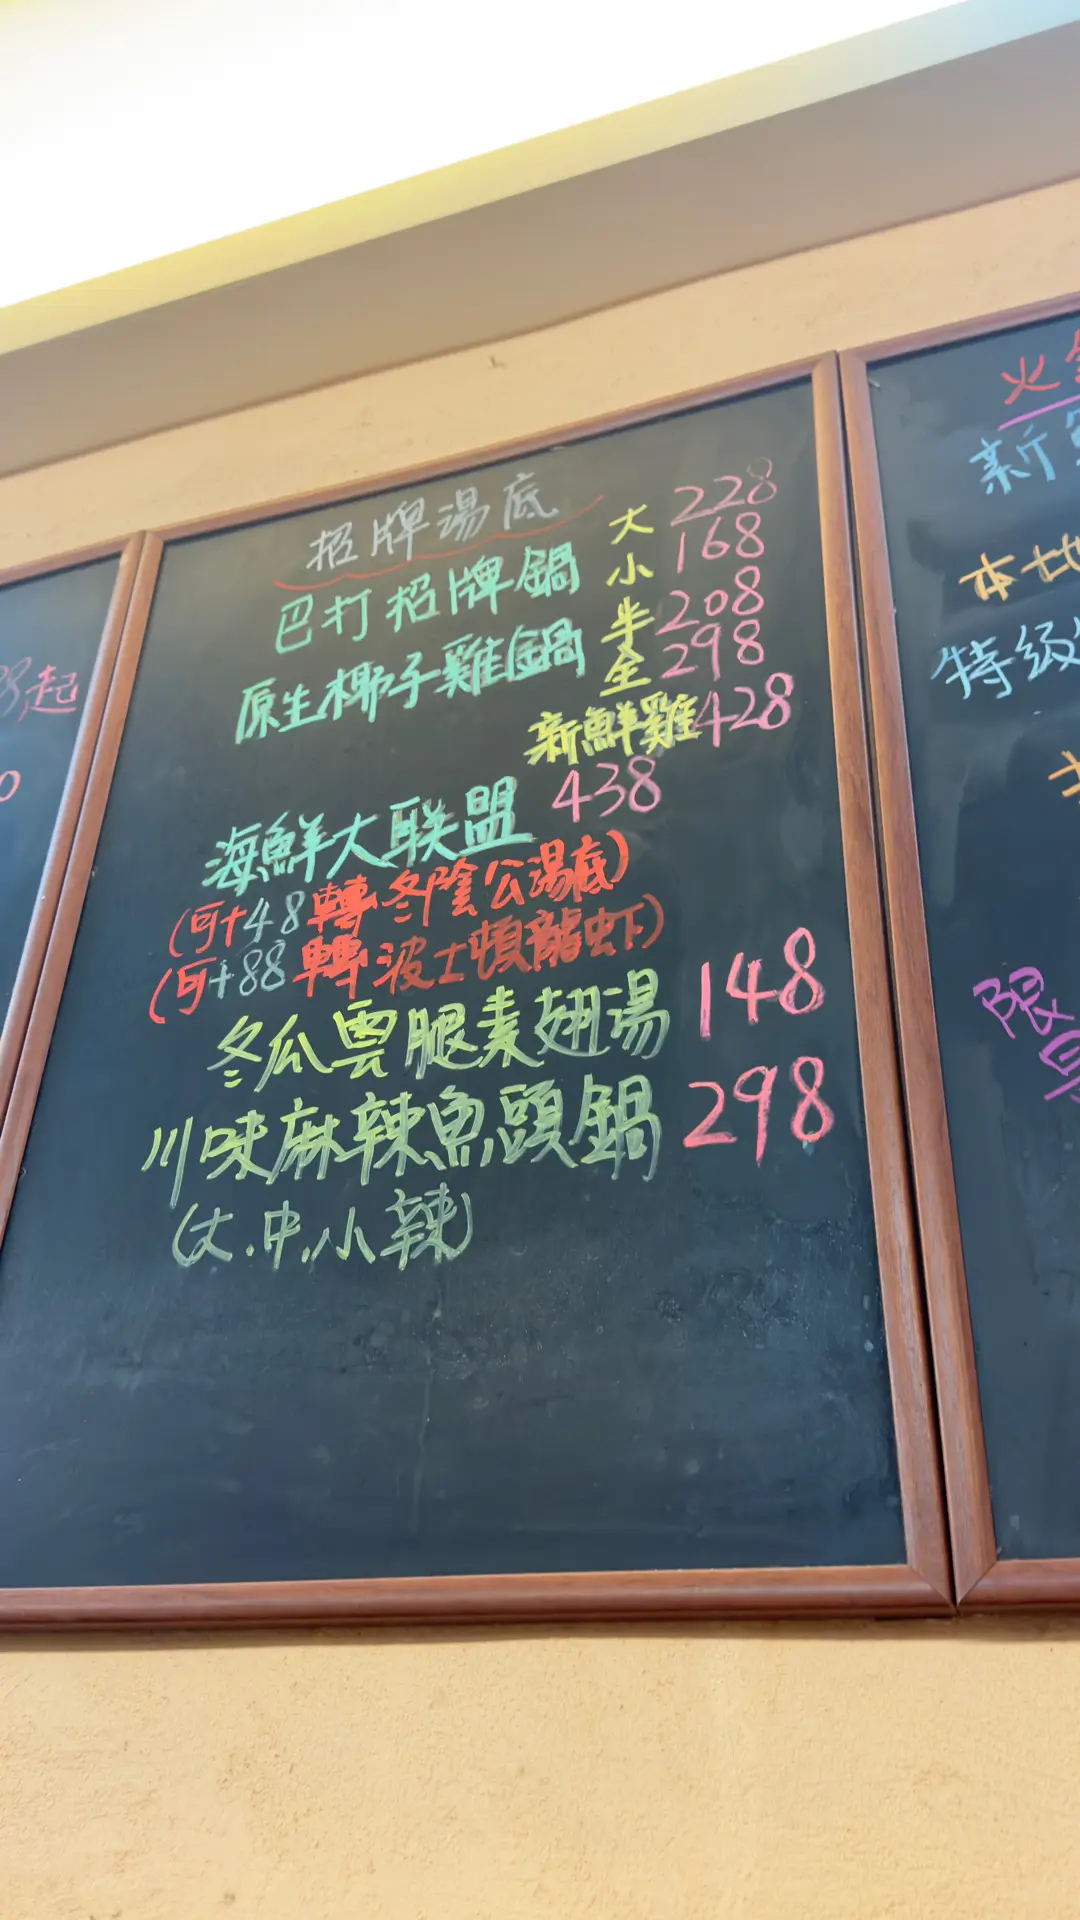 起
招牌湯底
巴打招牌鍋 大 228
小 168
原生椰子雞鍋 半 208
全 298
新鮮雞 428
海鮮大联盟 438
(可+48轉冬陰公湯底)
(可+88轉波士頓龍虾)
冬瓜雲腿素翅湯 148
川味麻辣魚頭鍋 298
(大.中.小辣)
火
新
本地
特级
限